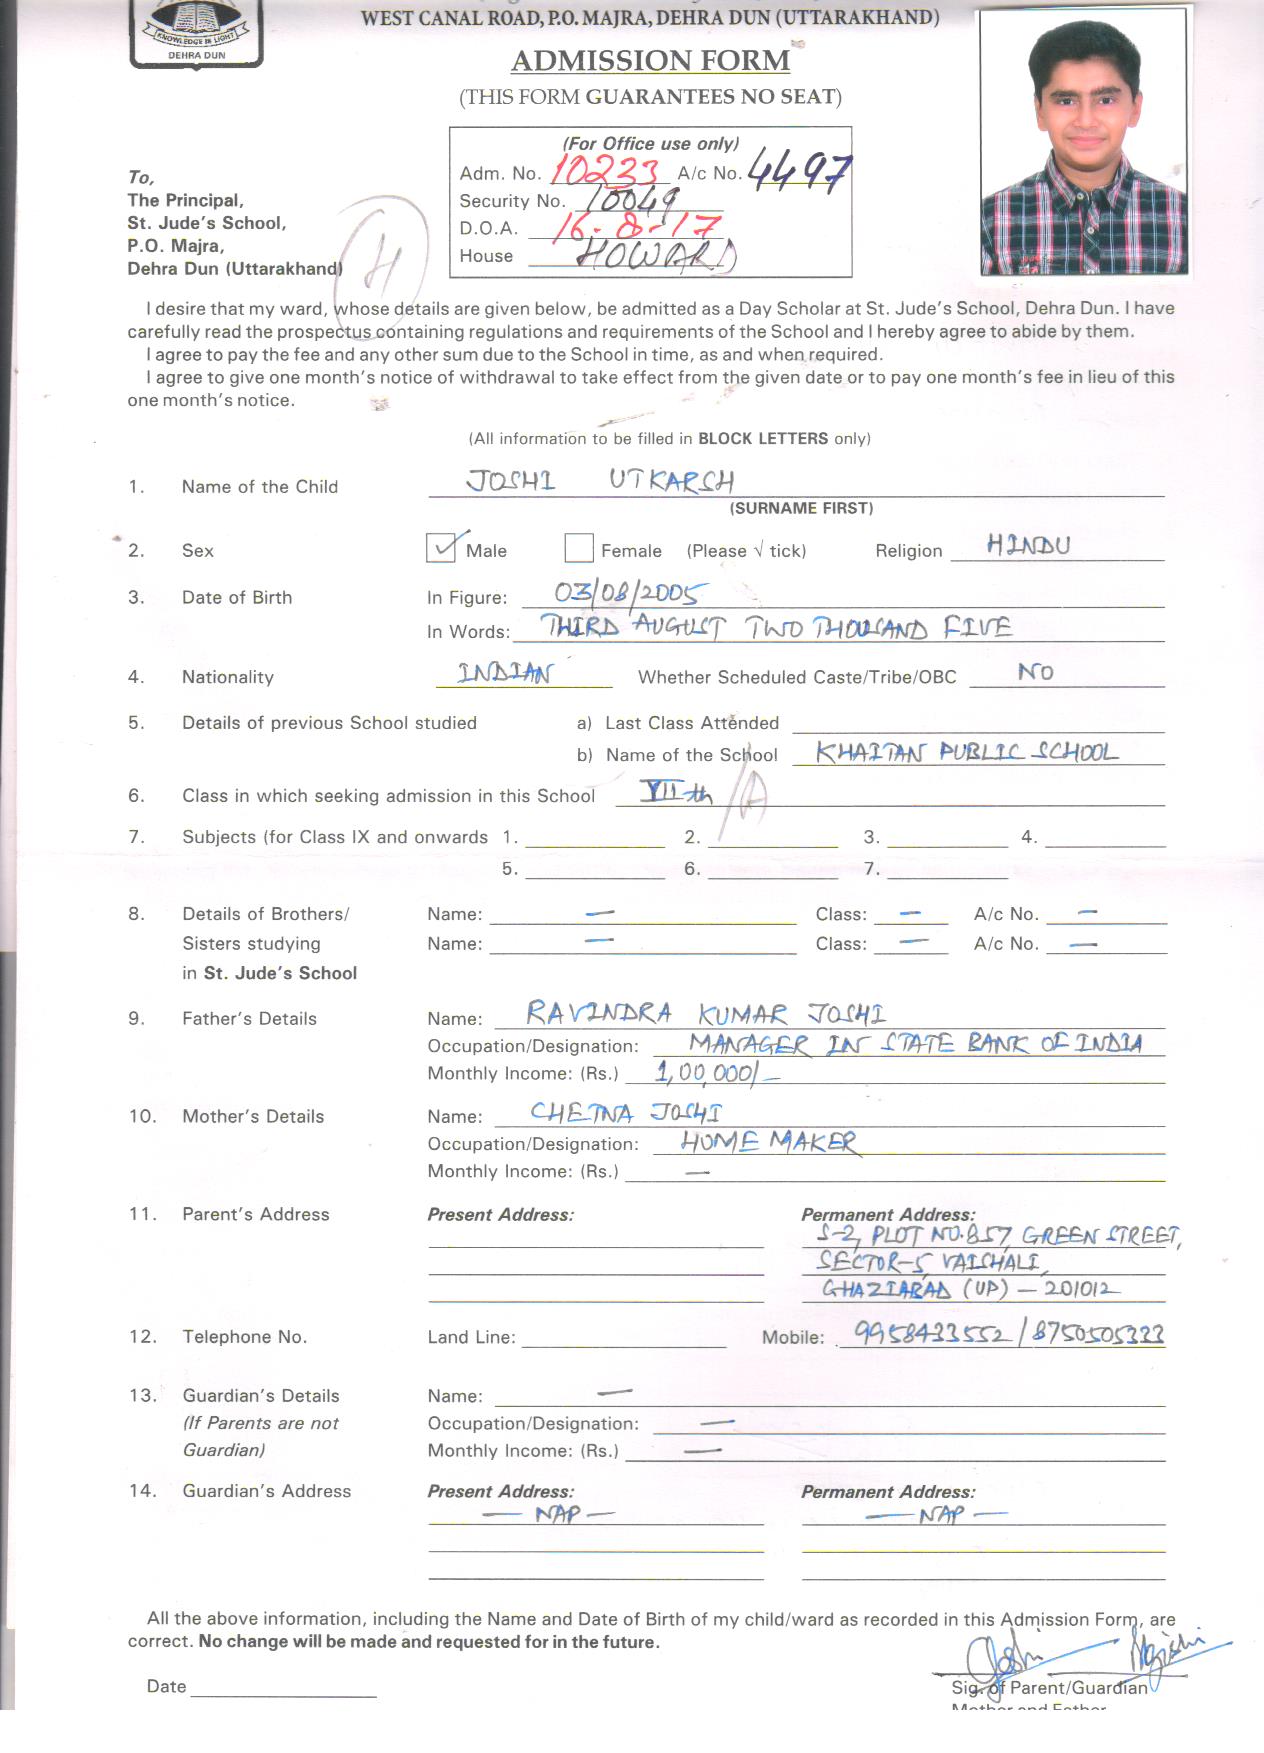 KNOWLEDGE IS LIGHT
DEHRA DUN
WEST CANAL ROAD, P.O. MAJRA, DEHRA DUN (UTTARAKHAND)
ADMISSION FORM
(THIS FORM GUARANTEES NO SEAT)
(For Office use only)
Adm. No. 10233 A/c No. 4497
Security No. 10049
D.O.A. 16-8-17
House HOWARD
To,
The Principal,
St. Jude's School,
P.O. Majra,
Dehra Dun (Uttarakhand)
H
I desire that my ward, whose details are given below, be admitted as a Day Scholar at St. Jude's School, Dehra Dun. I have
carefully read the prospectus containing regulations and requirements of the School and I hereby agree to abide by them.
I agree to pay the fee and any other sum due to the School in time, as and when required.
I agree to give one month's notice of withdrawal to take effect from the given date or to pay one month's fee in lieu of this
one month's notice.
(All information to be filled in BLOCK LETTERS only)
1. Name of the Child JOSHI UTKARSH
(SURNAME FIRST)
2. Sex Male Female (Please √ tick) Religion HINDU
3. Date of Birth In Figure: 03/08/2005
In Words: THIRD AUGUST TWO THOUSAND FIVE
4. Nationality INDIAN Whether Scheduled Caste/Tribe/OBC NO
5. Details of previous School studied a) Last Class Attended
b) Name of the School KHAITAN PUBLIC SCHOOL
6. Class in which seeking admission in this School VIIth /A
7. Subjects (for Class IX and onwards 1. 2. 3. 4.
5. 6. 7.
8. Details of Brothers/ Name: — Class: — A/c No. —
Sisters studying Name: — Class: — A/c No. —
in St. Jude's School
9. Father's Details Name: RAVINDRA KUMAR JOSHI
Occupation/Designation: MANAGER IN STATE BANK OF INDIA
Monthly Income: (Rs.) 1,00,000/-
10. Mother's Details Name: CHETNA JOSHI
Occupation/Designation: HOME MAKER
Monthly Income: (Rs.) —
11. Parent's Address Present Address: Permanent Address:
S-2, PLOT NO.857, GREEN STREET,
SECTOR-5, VAISHALI,
GHAZIABAD (UP) — 201012
12. Telephone No. Land Line: Mobile: 9958433552 / 8750505333
13. Guardian's Details Name: —
(If Parents are not Occupation/Designation: —
Guardian) Monthly Income: (Rs.) —
14. Guardian's Address Present Address: Permanent Address:
— NAP — — NAP —
All the above information, including the Name and Date of Birth of my child/ward as recorded in this Admission Form, are
correct. No change will be made and requested for in the future.
Date
Sig. of Parent/Guardian
Mother and Father